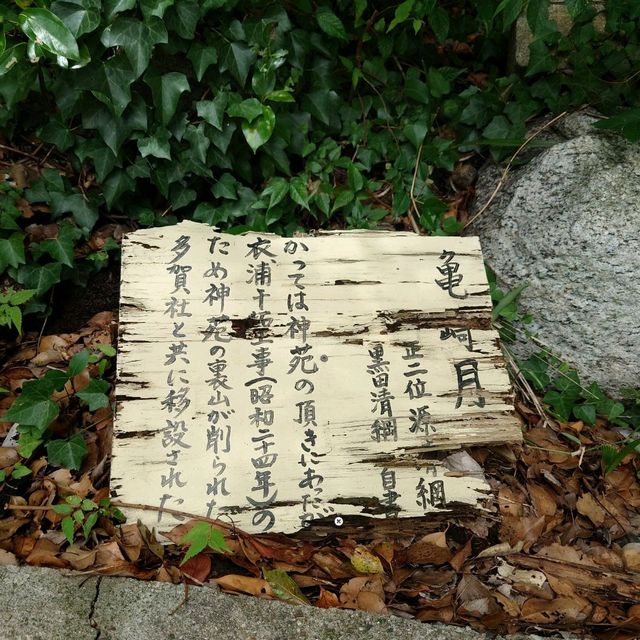 亀崎月
正二位源清綱
黒田清綱 自書
かつては神苑の頂きにあったが
衣浦干拓工事(昭和二十四年)の
ため神苑の裏山が削られた
多賀社と共に移設された